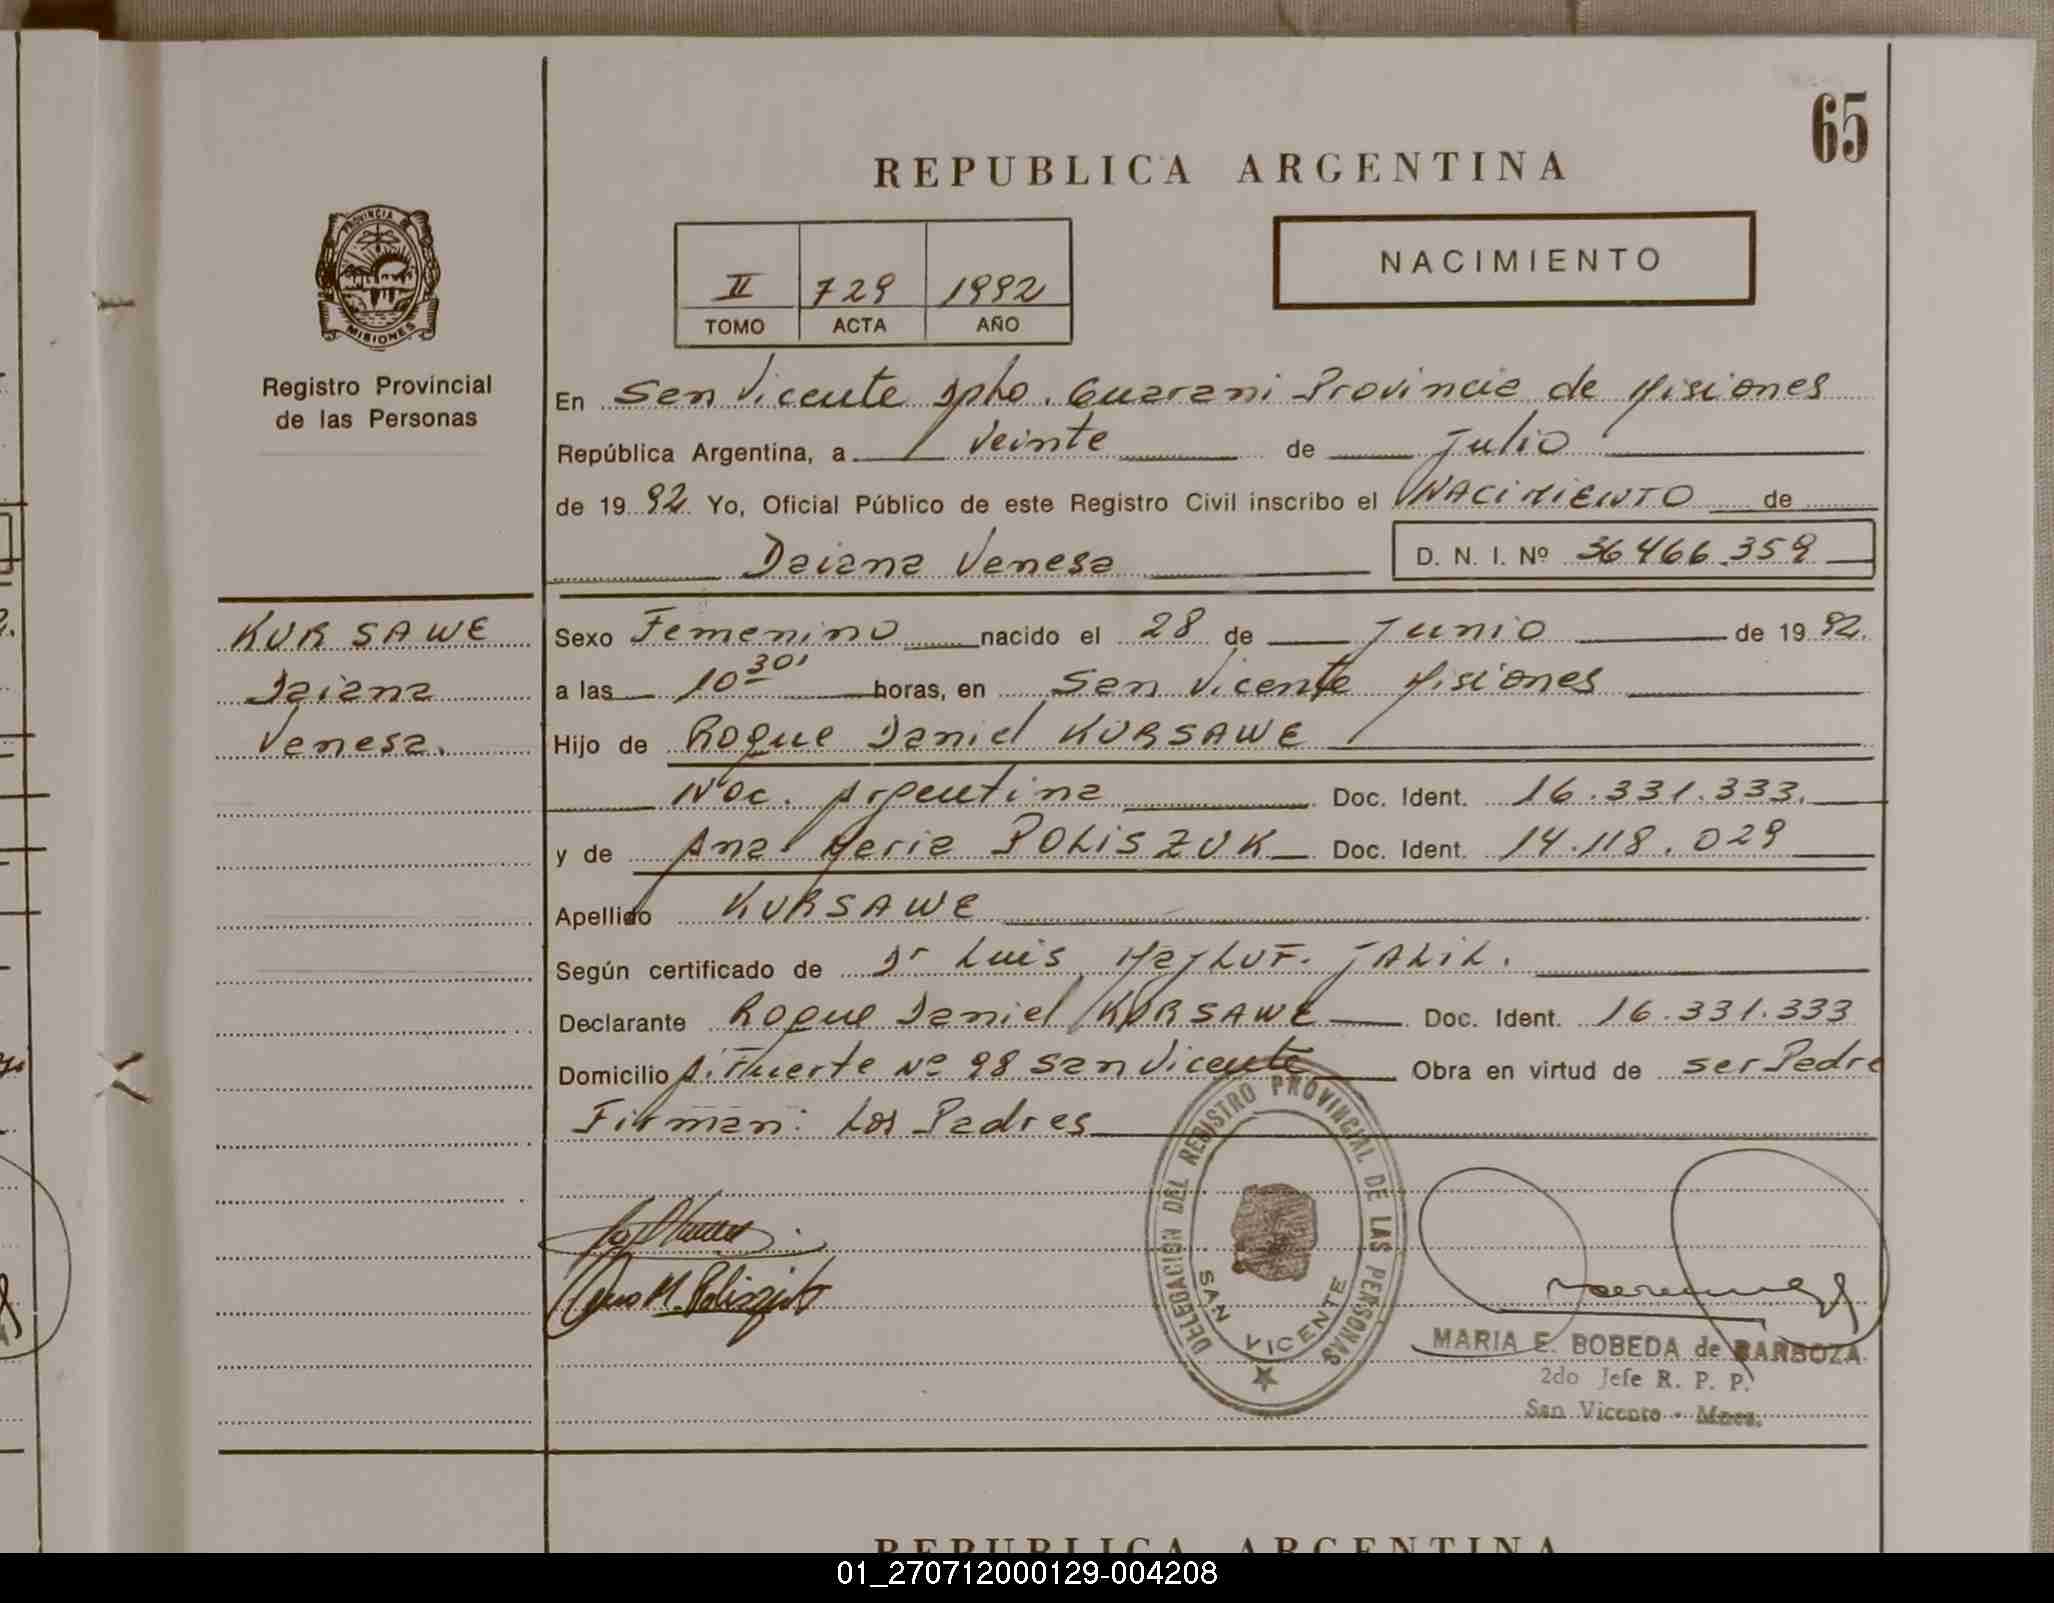 65
REPUBLICA ARGENTINA
PROVINCIA DE
MISIONES
Registro Provincial
de las Personas
II 729 1992
TOMO ACTA AÑO
NACIMIENTO
En San Vicente Dpto. Guarani Provincia de Misiones
República Argentina, a veinte de Julio
de 1992 Yo, Oficial Público de este Registro Civil inscribo el NACIMIENTO de
Daiana Vanesa D. N. I. Nº 36.466.359
KURSAWE
Daiana
Vanesa.
Sexo Femenino nacido el 28 de Junio de 1992.
a las 10 30' horas, en San Vicente Misiones
Hijo de Roque Daniel KURSAWE
Nac. Argentina Doc. Ident. 16.331.333.
y de Ana Maria POLISZUK Doc. Ident. 14.118.029
Apellido KURSAWE
Según certificado de Dr Luis JALIL.
Declarante Roque Daniel KURSAWE Doc. Ident. 16.331.333
Domicilio Nº 98 San Vicente Obra en virtud de ser Padre
Firman: Los Padres
DELEGACION DEL REGISTRO PROVINCIAL DE LAS PERSONAS
SAN VICENTE
MARIA E. BOBEDA de BARBOZA
2do Jefe R. P. P.
San Vicente - Mnes.
REPUBLICA ARGENTINA
01_270712000129-004208